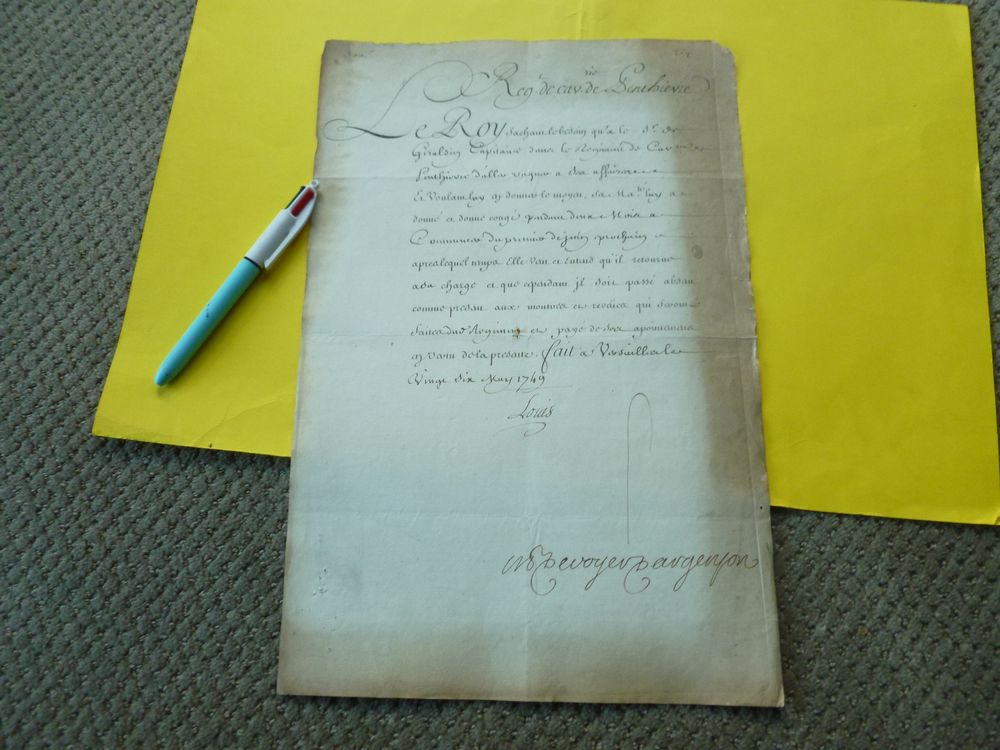 Reg.t de cav.rie de Penthievre
Le Roy sachant le besoin qu'a le S.r de
Giraldin Capitaine dans le Regiment de Cav.rie de
Penthievre d'aller vaquer a ses affaires
Et Voulant luy en donner le moyen, Sa Ma.té luy a
donné et donne congé pendant deux Mois a
Commencer du premier de juin prochain
apres lequel temps Elle Veut et Entend qu'il retourne
a sa charge et que cependant jl soit passé absent
comme present aux montres et reveües qui seront
faites dud. Regiment et payé de ses apointemens
en vertu de la presente. fait a Versailles le
Vingt six May 1749
Louis
M P De voyer D'argenson